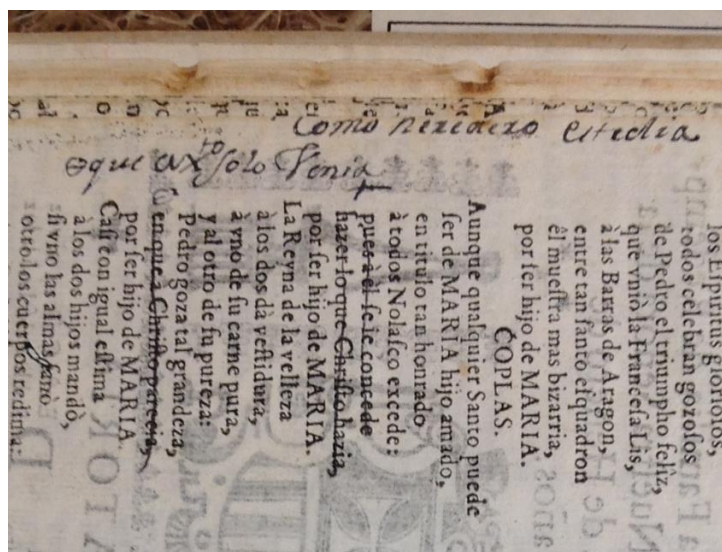 los Espiritus gloriosos,
todos celebran gozosos
de Pedro el triumpho felìz,
que vniò la Francesa Lis,
à las Barras de Aragon,
entre tan santo esquadron
èl muestra mas bizarria,
por ser hijo de MARIA.
COPLAS.
Aunque qualquier Santo puede
ser de MARIA hijo amado,
en titulo tan honrado
à todos Nolasco excede:
pues à el se le concede
hazer lo que Christo hazia,
por ser hijo de MARIA.
La Reyna de la velleza
à los dos dà vestidura,
à vno de su carne pura,
y al otro de su pureza:
Pedro goza tal grandeza,
en que à Christo parecia,
por ser hijo de MARIA.
Casi con igual estima
à los dos hijos mandò,
si vno las almas sanò
otro los cuerpos redima:
Como heredero
solo Venia